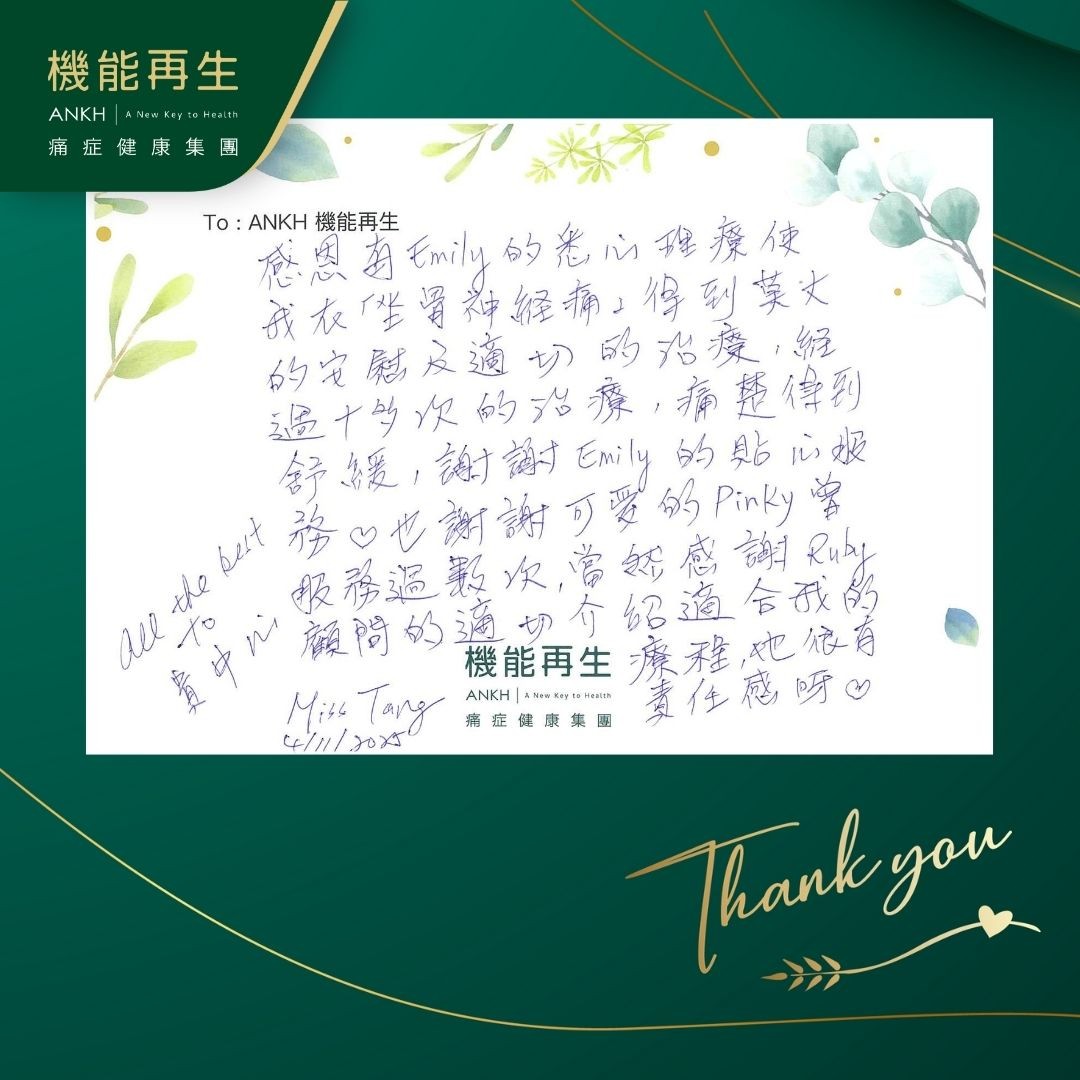 機能再生
ANKH | A New Key to Health
痛症健康集團
To : ANKH 機能再生
感恩有Emily的悉心理療使
我在「坐骨神經痛」得到莫大
的安慰及適切的治療，經
過十多次的治療，痛楚得到
舒緩，謝謝Emily的貼心服
務♡也謝謝可愛的Pinky曾
服務過數次，當然感謝Ruby
顧問的適切介紹適合我的
療程，她很有
責任感呀♡
All the best
to
貴中心
Miss Tang
4/11/2025
機能再生
ANKH | A New Key to Health
痛症健康集團
Thank you